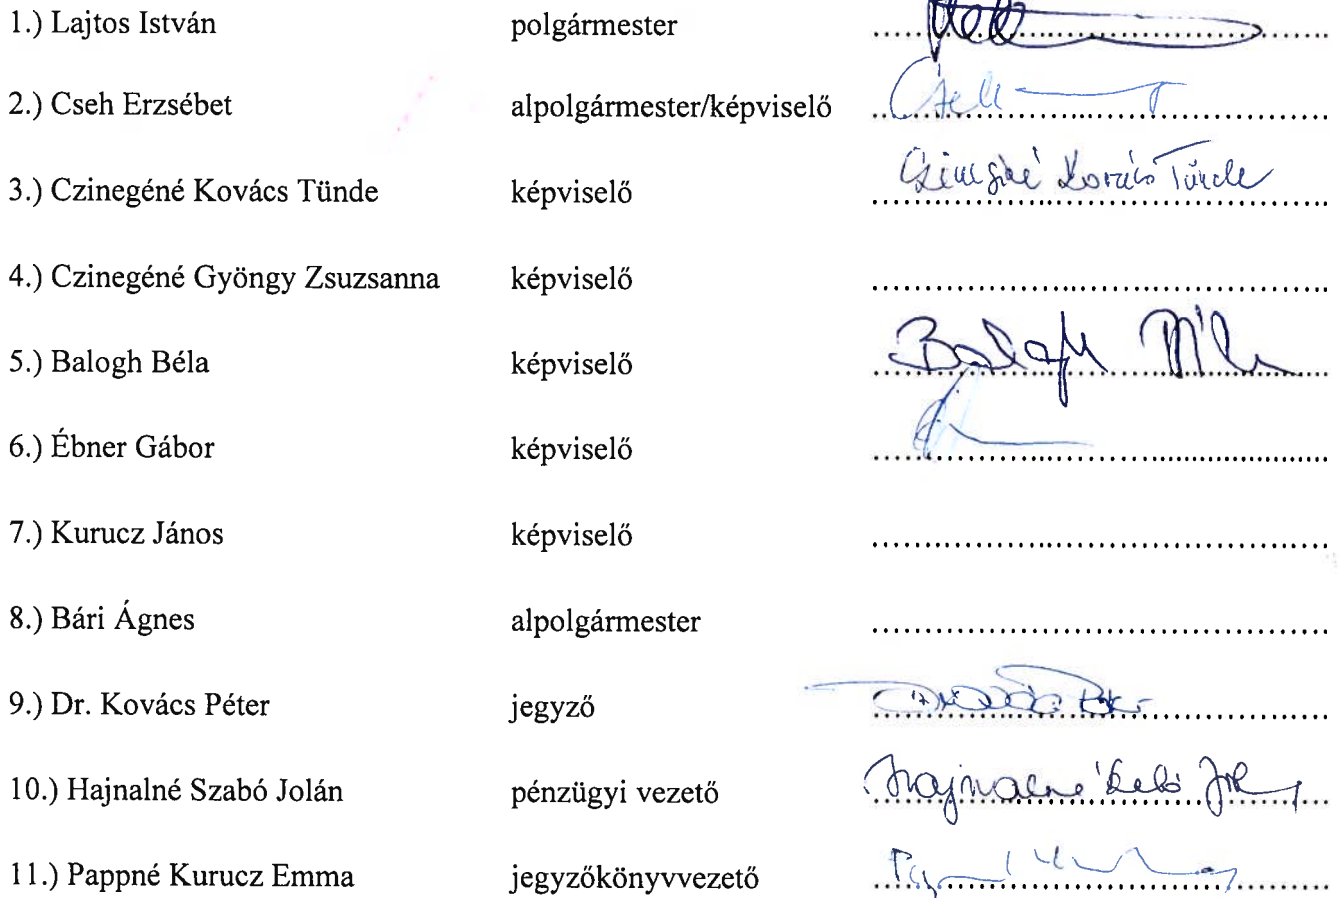 1.) Lajtos István polgármester
2.) Cseh Erzsébet alpolgármester/képviselő Cseh
3.) Czinegéné Kovács Tünde képviselő Czinegéné Kovács Tünde
4.) Czinegéné Gyöngy Zsuzsanna képviselő
5.) Balogh Béla képviselő Balogh Béla
6.) Ébner Gábor képviselő
7.) Kurucz János képviselő
8.) Bári Ágnes alpolgármester
9.) Dr. Kovács Péter jegyző
10.) Hajnalné Szabó Jolán pénzügyi vezető Hajnalné Szabó
11.) Pappné Kurucz Emma jegyzőkönyvvezető